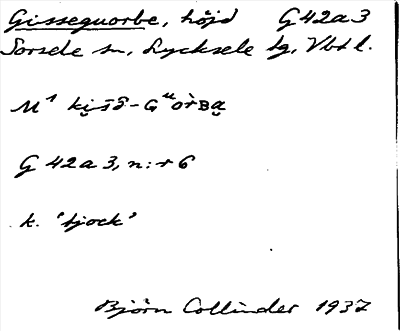 Gisseguorbe, höjd G 42a3
Sorsele sn, Lycksele lg, Vbtl.
G 42a3, n:r 6
k. 'tjock'
Björn Collinder 1937